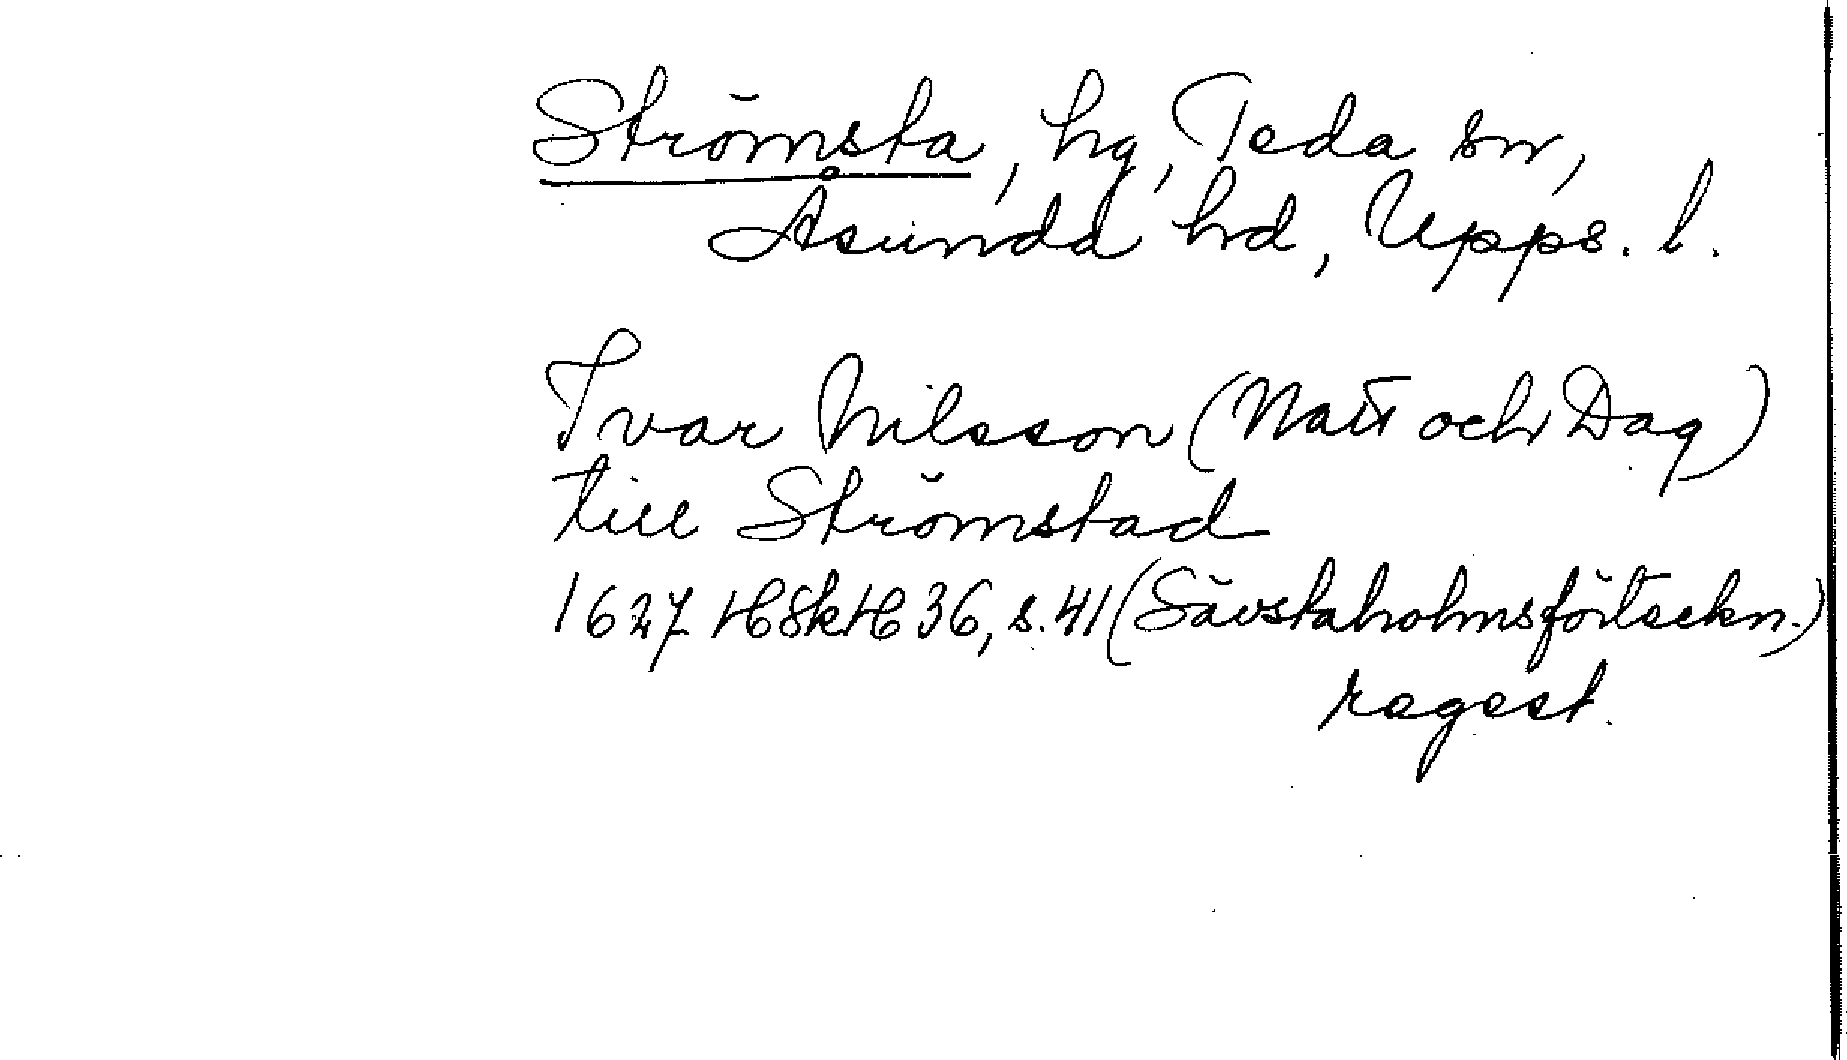 Strömsta, hg, Teda sn,
Åsunda hd, Upps. l.
Ivar Nilsson (Natt och Dag)
till Strömstad
1627 HSkH 36, s. 41 (Sävstaholmsförteckn.)
regest.